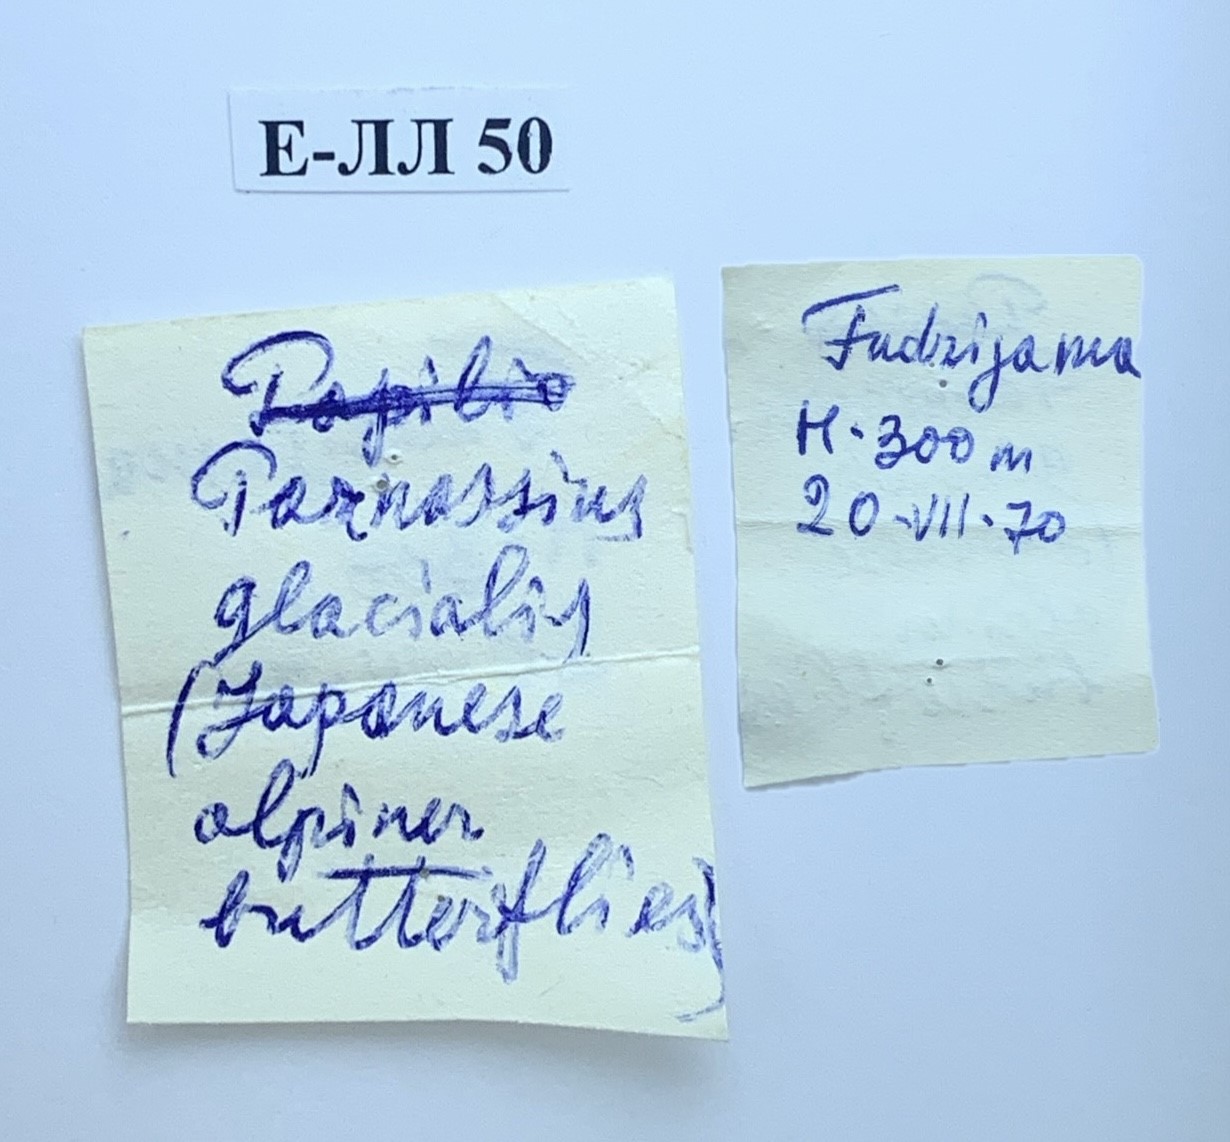 Е-ЛЛ 50
Papilio
Parnassius
glacialis
(Japanese
alpiner
butterflies)
Fudzijama
H·300 m
20·VII·70